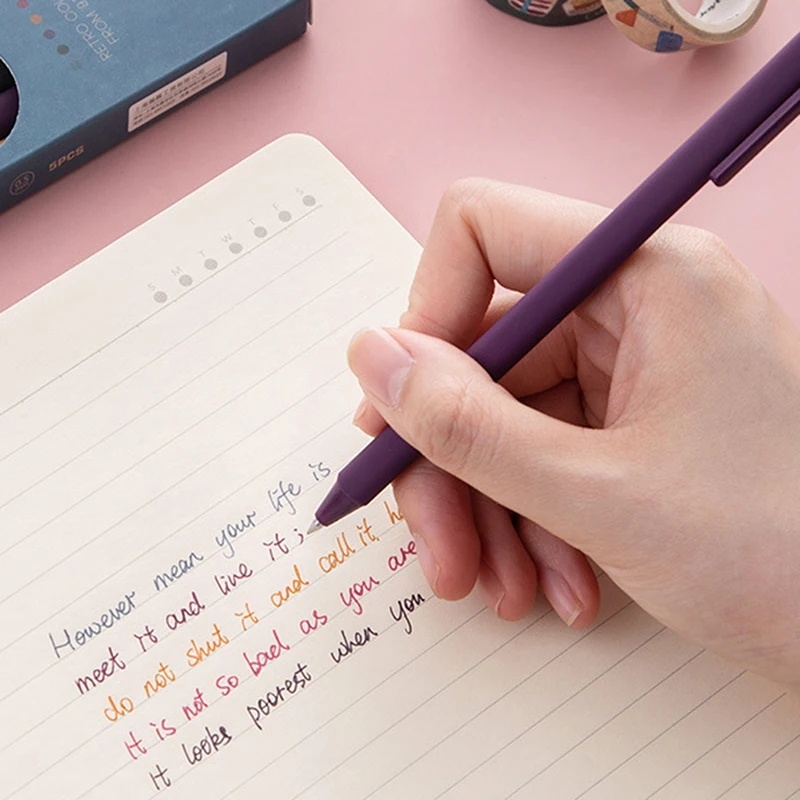 RETRO CO
FROM 9
0.5
5PCS
S M T W T F S
However mean your life is
meet it and live it;
do not shut it and call it h
It is not so bad as you are
It looks poorest when you